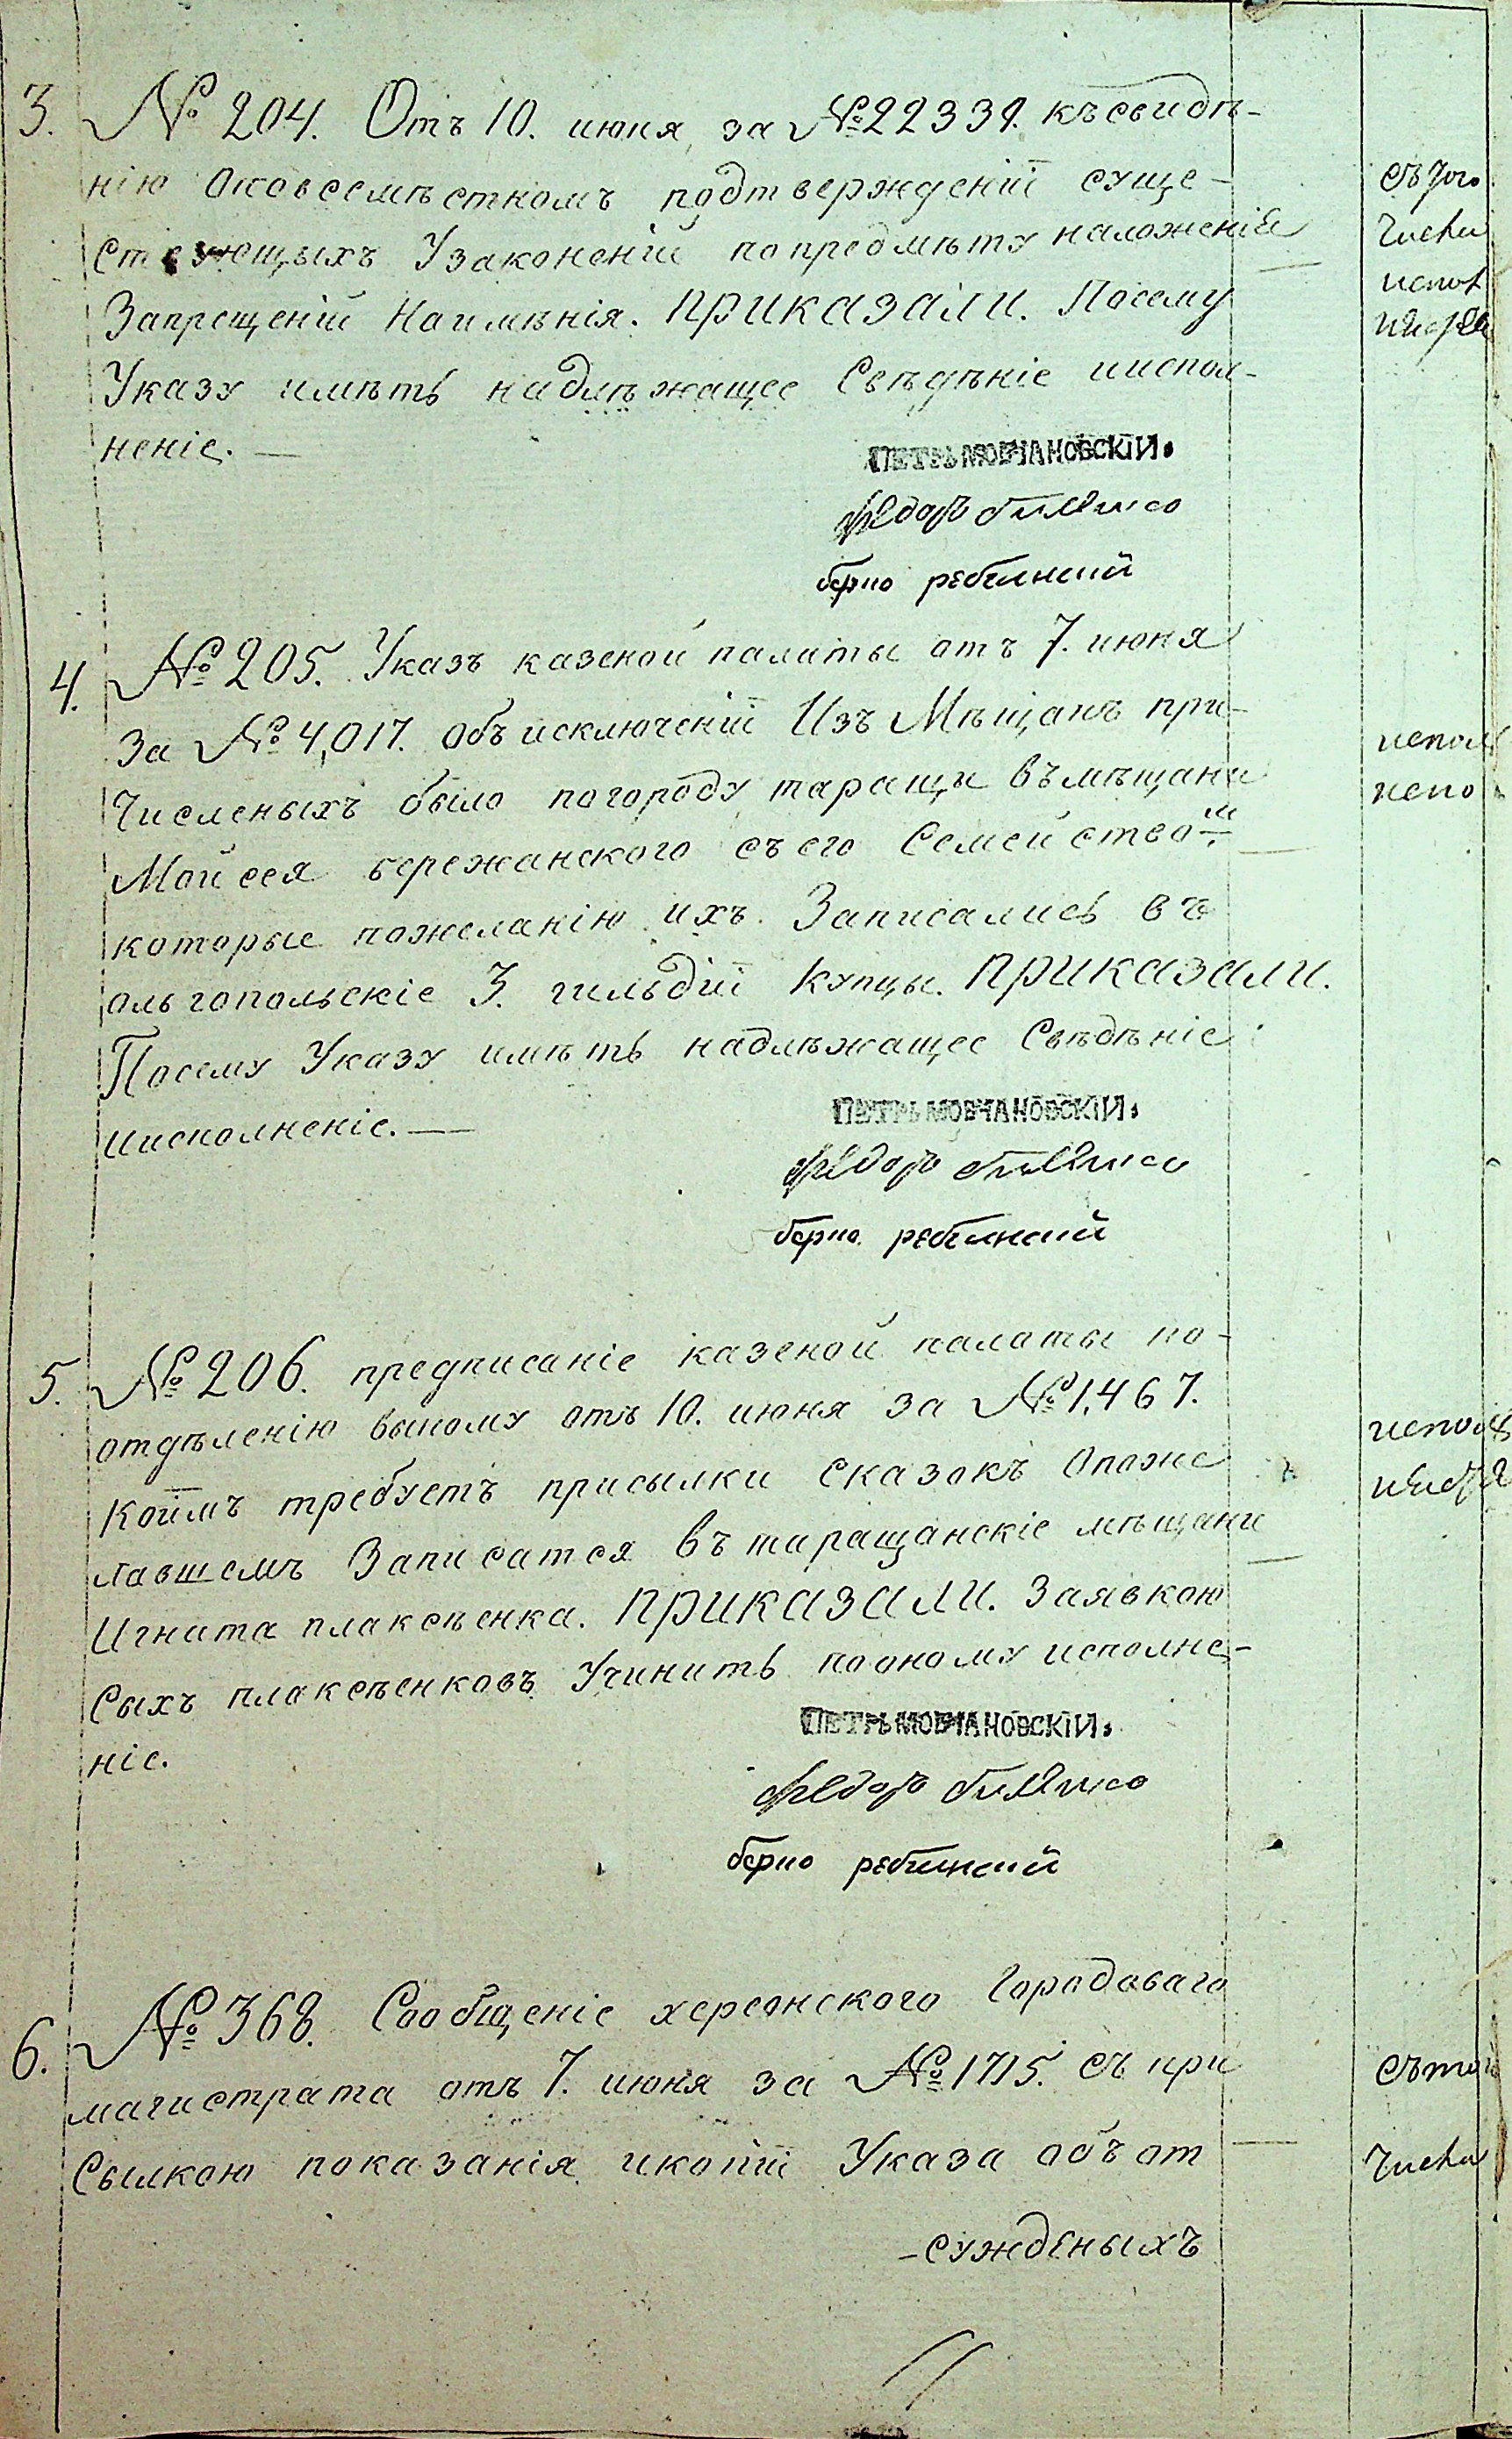 3. № 204. Отъ 10. июня за № 22339. къ свидѣ-
нію оповсемѣстномъ подтвержденій суще-
ствующыхъ Узаконеній попредмѣту наложенія
Запрещеній Наимѣнія. приказали. Посему
Указу имѣть надлѣжащее Свѣдѣніеииспол-
неніе. —
ПЕТРЪ МОВЧАНОВСКІЙ.
федоръ
берко
4. № 205. Указъ казеной палаты отъ 7. июня
за № 4,017. объ исключеній Изъ Мѣщанъ при-
Численыхъ было погороду таращи въ мѣщани
Мойсея бережанского съ его Семейством
которые пожеланію ихъ Записались въ
ольгопольскіе 3. гильдій Купцы. приказали.
Посему Указу имѣть надлѣжащее Свѣдѣніе
иисполненіе. —
ПЕТРЪ МОВЧАНОВСКІЙ.
федоръ
берко
5. № 206. предписаніе казеной палаты по-
отдѣленію выному отъ 10. июня за № 1,467.
Коймъ требуетъ присылки сказокъ Опоже
лавшемъ Записатся въ таращанскіе мѣщани
Игната плаксѣенка. приказали. Заявкою
Сыхъ плаксѣенковъ Учинить пооному исполне-
ніе.
ПЕТРЪ МОВЧАНОВСКІЙ.
федоръ
берко
6. № 368. Сообщеніе херсонского Городоваго
магистрата отъ 7. июня за № 1715. съ при
Сылкою показанія икопій Указа объ от
-сужденыхъ